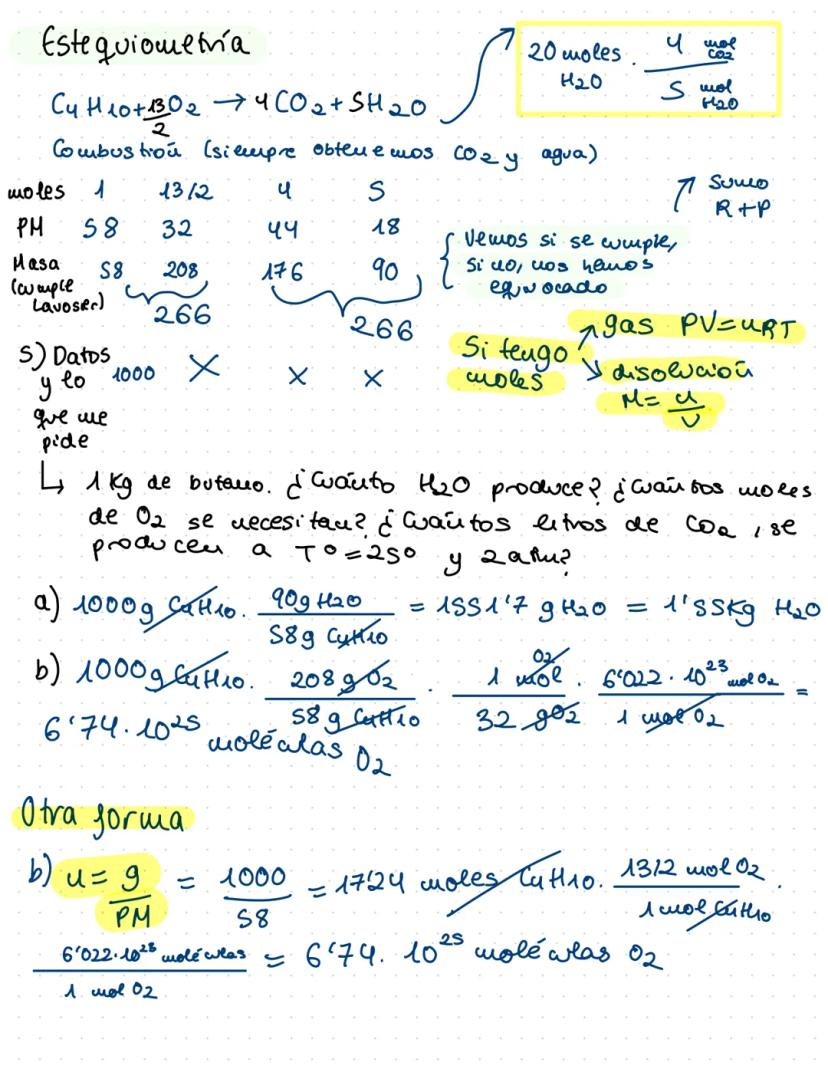 Estequiometría
20 moles H2O . 4 mol CO2 / 5 mol H2O
C4H10 + 13/2 O2 → 4CO2 + 5H2O
Combustión (siempre obtenemos CO2 y agua)
moles 1 13/2 4 5
PM 58 32 44 18
Masa (cumple Lavoser) 58 208 176 90
266 266
{ Vemos si se cumple,
si no, nos hemos
equivocado
↗ Sumo
R+P
5) Datos
y lo 1000 X X X
que me
pide
Si tengo
moles
↗ gas PV=nRT
↘ disolución
M= n/V
↳ 1 kg de butano. ¿Cuánto H2O produce? ¿Cuántos moles
de O2 se necesitan? ¿Cuántos litros de CO2, se
producen a Tº=25º y 2atm?
a) 1000g C4H10 . 90g H2O / 58g C4H10 = 1551'7 g H2O = 1'55kg H2O
b) 1000g C4H10 . 208 g O2 / 58 g C4H10 . 1 mol O2 / 32 g O2 . 6'022 · 10²³ mol O2 / 1 mol O2 =
6'74 · 10²⁵ moléculas O2
Otra forma
b) n = g/PM = 1000/58 = 17'24 moles C4H10 . 13/2 mol O2 / 1 mol C4H10 .
6'022·10²³ moléculas / 1 mol O2 = 6'74 . 10²⁵ moléculas O2